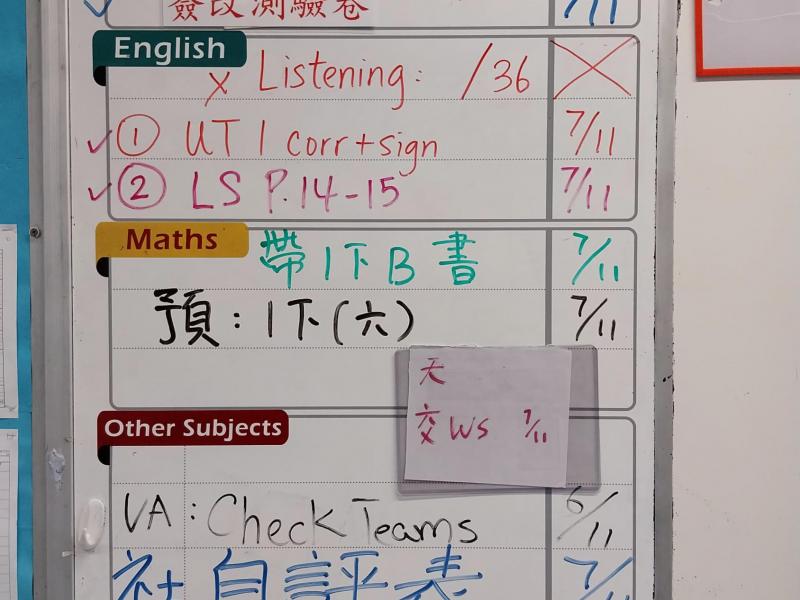 簽改測驗卷 7/11
English
x Listening: /36
✓ ① UT 1 corr+sign 7/11
✓ ② LS P.14-15 7/11
Maths
帶1下B書 7/11
預:1下(六) 7/11
天
交 WS 7/11
Other Subjects
VA: Check Teams 6/11
社自評表 7/11